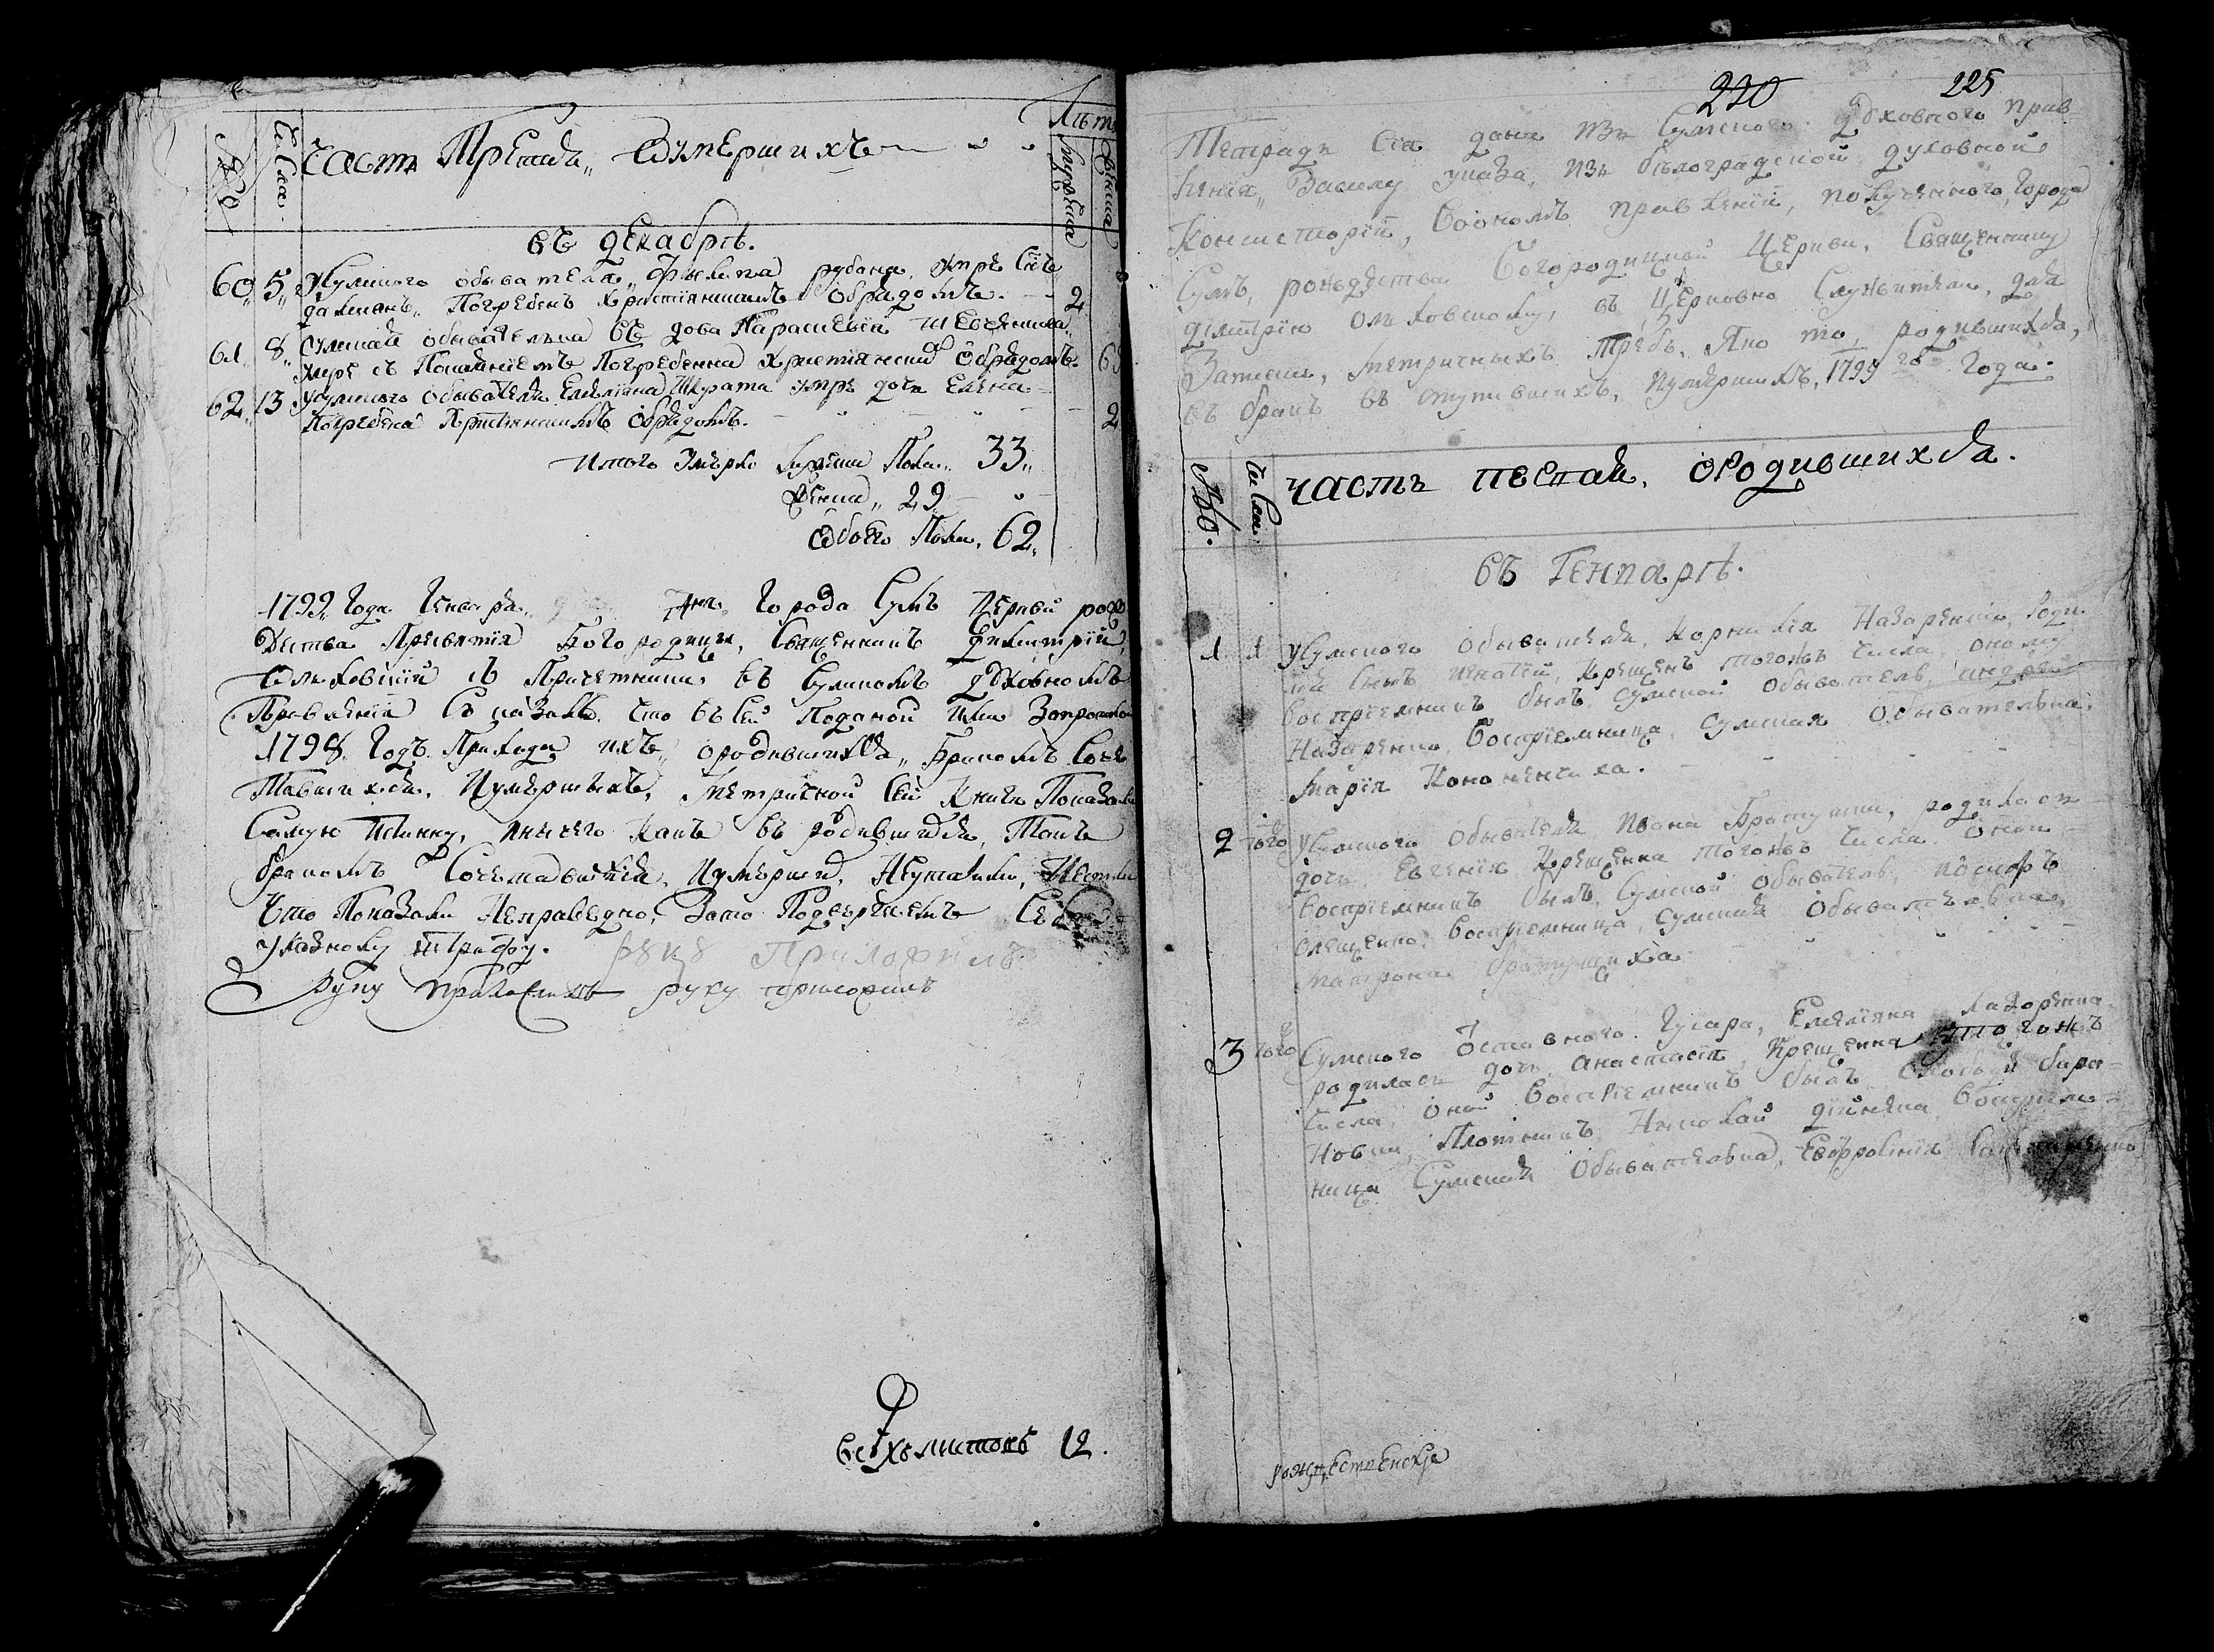 Лѣт
№
Числа
Часть Третая, Оумершихъ
мужеска
женска
Въ декабрѣ.
60 5 Усумского обывателя, рубана, умре Сынъ
дамианъ, Погребенъ християнскимъ обрадомъ. 2
61 8 Сумская обывателька вдова Параскевия
умре съ Покаяниемъ Погребенна християнскимъ обрадомъ. 6
62 13 Усумского Обывателя Емелиана Шкурата умре дочь Елена
Погребена християнскимъ обрадомъ. 2
Итого Умерло мужеска Пола 33
женска 29
Обоего Пола 62
1799 Года Генваря 7 дня Города Сумъ Церкви рож
дества Пресвятия Богородицы, Священникъ Димитрий
Ольховский съ Причетники въ Сумскомъ Духовномъ
Правлении Сказалъ что въ Сей Поданой
1798 Годъ Прихода ихъ ородившихся, Бракомъ Соче
тавшихся, Иумершихъ, метричной Сей Книги Показали
Самую Истинну, иничего какъ въ родившихся, Такъ
бракомъ Сочетавшихся, Иумерших, Неутаили, Иестли
Что Показали Неправедно, Зато Подвержемъ Себя
указному штрафу. руку Приложилъ
Руку приложилъ руку приложилъ
всѣхъ листовъ 12.
220 225
Тетрадь Сия дана изъ Сумского духовного прав-
ления, Засилу указа, изъ бѣлоградской духовной
Консистории, Воономъ правлении, полученного, Города
Сумъ, рождества Богородицкой Церкви, Священнику
димитрию Ольховскому, съ Церковно Служители, для
Записки, метричныхъ требъ, Яко то, родившихся,
въ бракъ вступившихъ, иумершихъ, 1799 го Года.
№.
Числа.
Часть первая, Ородившихся.
Въ Генварѣ.
1 1 Усумского обывателя, Корнилия Назаренка, Роди
лся Сынъ Игнатий, Крещенъ тогожъ Числа, оному
Восприемникъ былъ Сумской Обыватель,
Назаренко, Восприемница, Сумская Обывателька,
мария Кононенчиха.
2 того Усумского Обывателя Ивана Братушки, родилась
дочь Евгения Крещенна тогожъ Числа оной
Восприемникъ былъ, Сумской обыватель, иосифъ
Олещенко, Восприемница, Сумская Обывателька,
матрона братущиха
3 того Сумского Отставного Гусара, Емелияна Лазоренка
родилась дочь Анастасия, Крещенна тогожъ
Числа, оной Восприемникъ былъ Слободи бара-
новки, Плотникъ, Николай Восприем-
ница Сумская Обывателька, Евфросиния
рождественскія